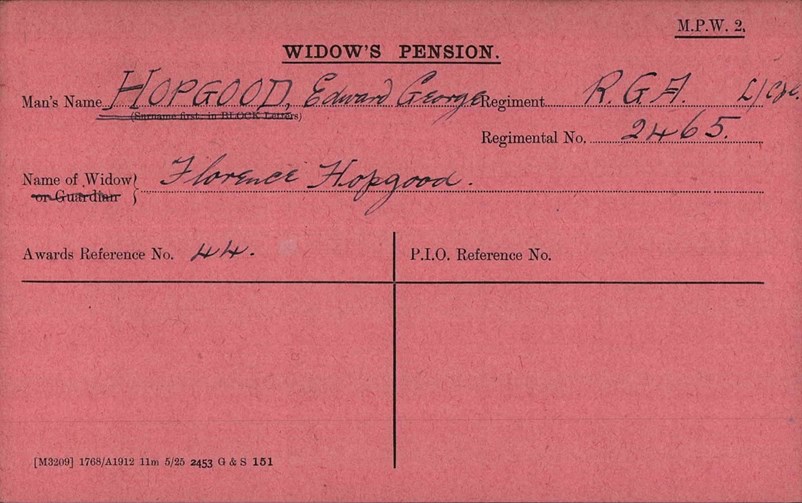 M.P.W. 2.
WIDOW'S PENSION.
Man's Name HOPGOOD, Edward George Regiment R.G.A. L/Cpl.
(Surname first, in BLOCK Letters)
Regimental No. 2465.
Name of Widow } Florence Hopgood.
or Guardian
Awards Reference No. 44. P.I.O. Reference No.
[M3209] 1768/A1912 11m 5/25 2453 G & S 151